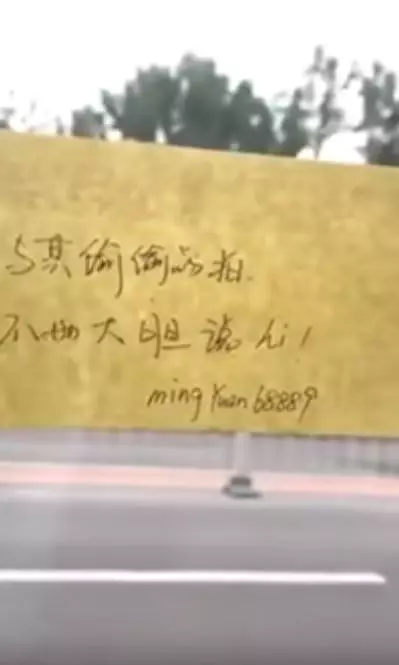 与其偷偷的拍.
不如大胆说hi!
mingyuan68889